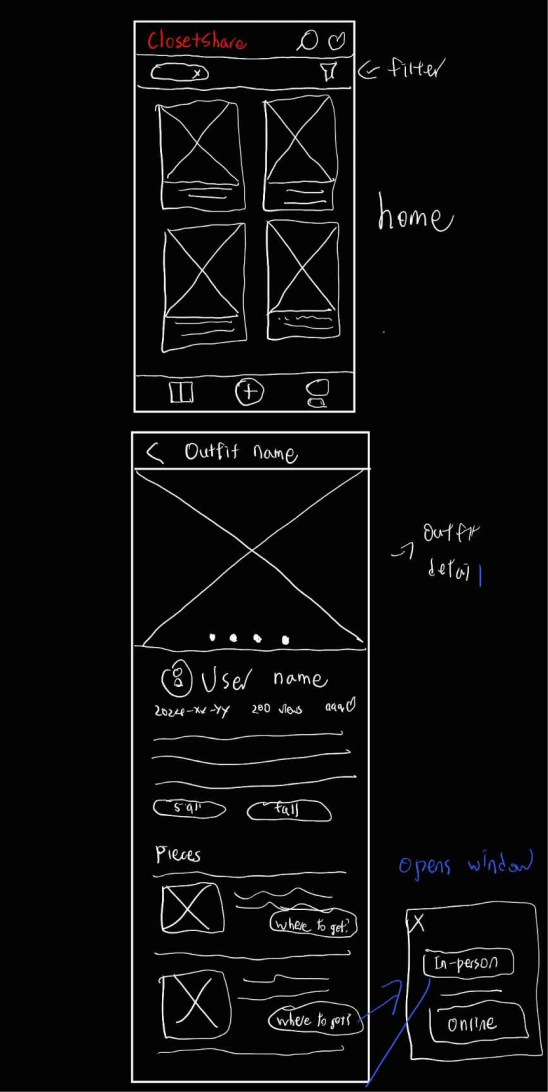 ClosetShare
x
filter
home
Outfit name
Outfit
detail
User name
2024-xx-yy 200 views
fall
Pieces
where to get?
where to get?
Opens window
X
In-person
Online